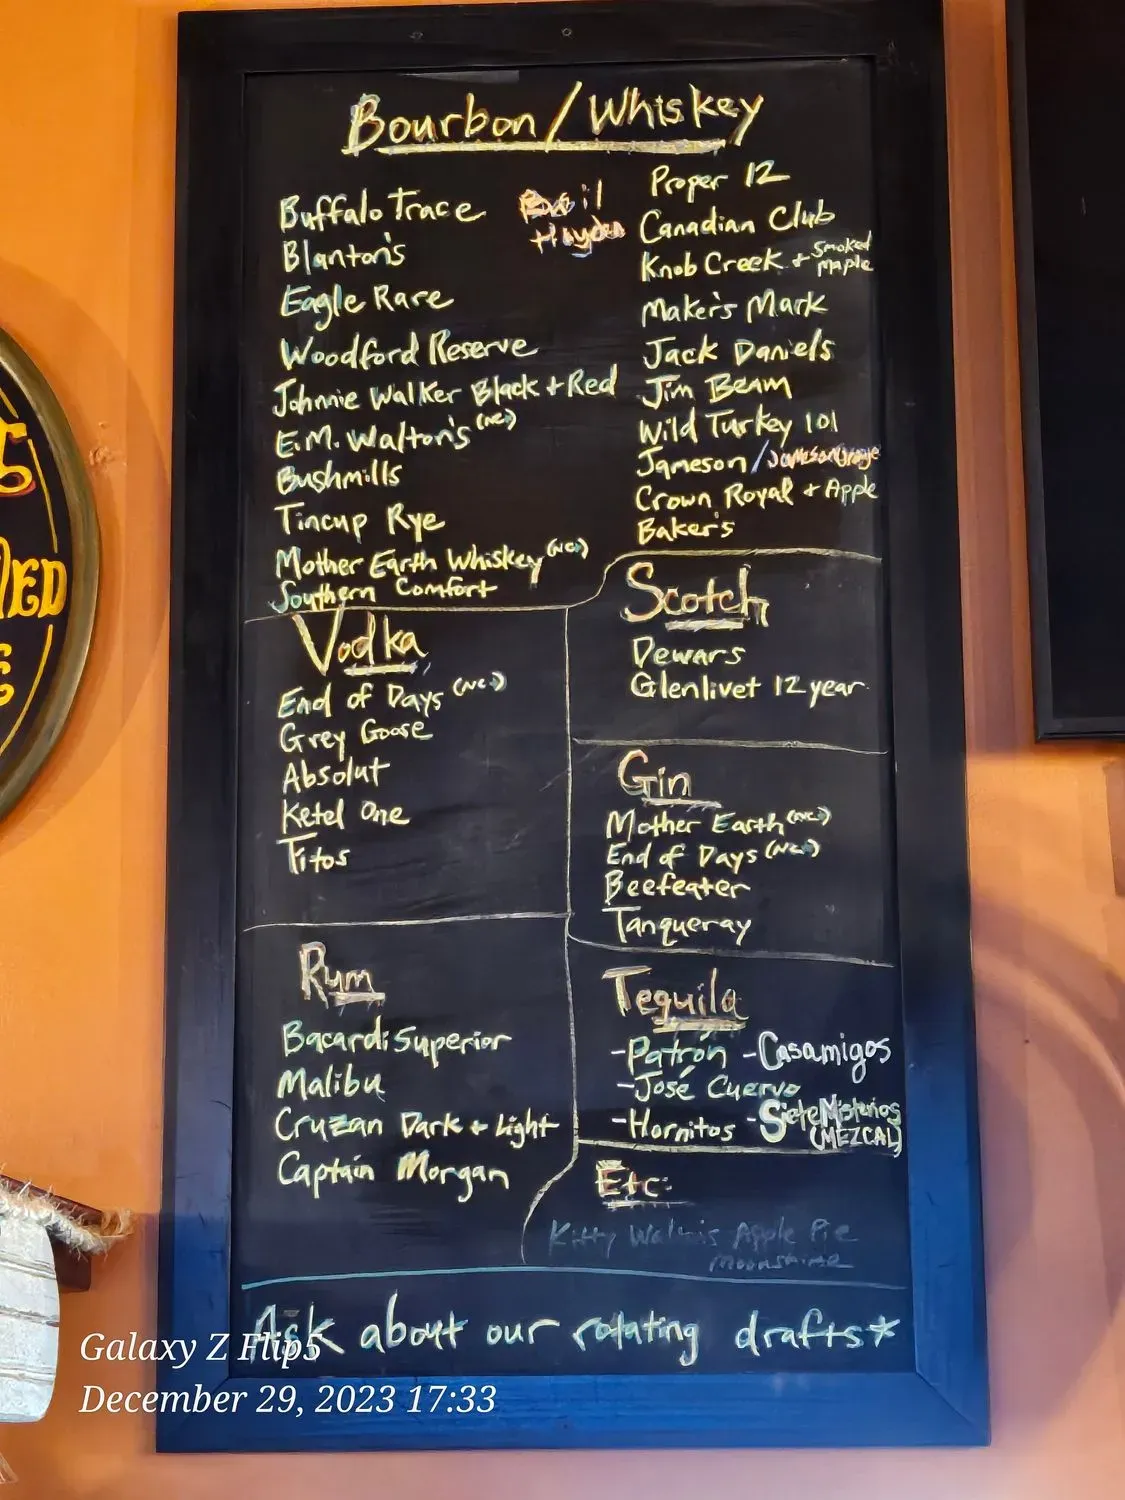 Bourbon/Whiskey
Buffalo Trace
Blanton's
Eagle Rare
Woodford Reserve
Johnnie Walker Black + Red
E.M. Walton's (NC)
Bushmills
Tincup Rye
Mother Earth Whiskey (NC)
Southern Comfort
Basil
Hayden
Proper 12
Canadian Club
Knob Creek + Smoked
Maple
Maker's Mark
Jack Daniels
Jim Beam
Wild Turkey 101
Jameson / Jameson Orange
Crown Royal + Apple
Baker's
Vodka
End of Days (NC)
Grey Goose
Absolut
Ketel One
Titos
Scotch
Dewars
Glenlivet 12 year
Gin
Mother Earth (NC)
End of Days (NC)
Beefeater
Tanqueray
Rum
Bacardi Superior
Malibu
Cruzan Dark + Light
Captain Morgan
Tequila
-Patrón -Casamigos
-José Cuervo
-Hornitos -Siete Misterios
(MEZCAL)
Etc:
Kitty Walton's Apple Pie
Moonshine
Ask about our rotating drafts*
Galaxy Z Flip5
December 29, 2023 17:33